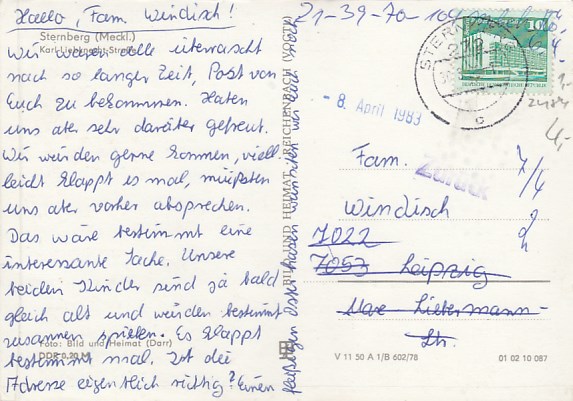 Hallo, Fam. Windisch!
Sternberg (Meckl.)
Karl-Liebknecht-Straße
Wir waren alle überrascht
nach so langer Zeit, Post von
Euch zu bekommen. Haben
uns aber sehr darüber gefreut.
Wir würden gerne kommen, viel-
leicht klappt es mal, müßten
uns aber vorher absprechen.
Das wäre bestimmt eine
interessante Sache. Unsere
beiden Kinder sind ja bald
gleich alt und würden bestimmt
zusammen spielen. Es klappt
bestimmt mal. Ist die
Foto: Bild und Heimat (Darr)
DDR 0,20 M
Adresse eigentlich richtig? Einen
BILD UND HEIMAT REICHENBACH (VOGTL)
21-39-70
STERNBERG
10
- 8. April 1983
Zurück
Fam.
7/4
Windisch
7022
7053 Leipzig
Max-Liebermann-
Str.
V 11 50 A 1/B 602/78
01 02 10 087